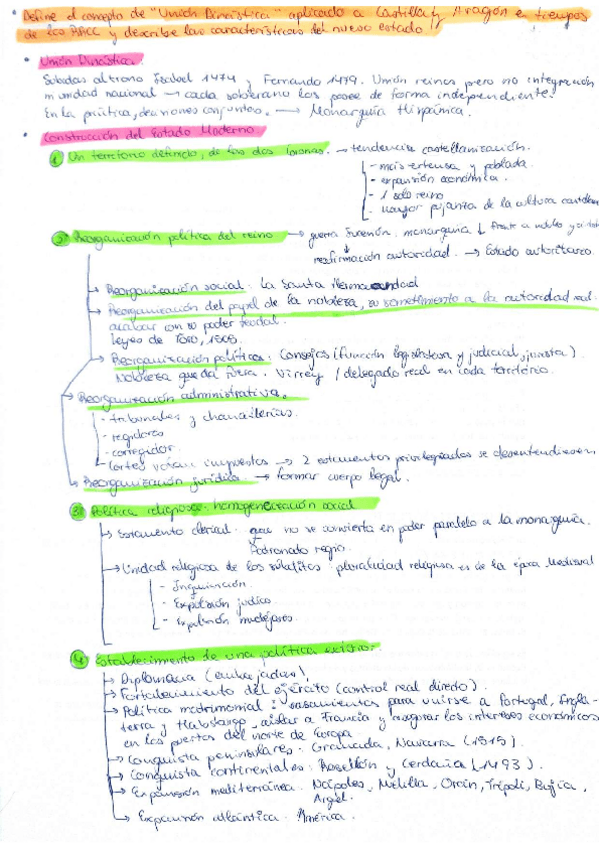 • Define el concepto de "Unión Dinástica" aplicado a Castilla y Aragón en tiempos
de los RRCC y describe las características del nuevo estado.
• Unión Dinástica.
Subidas al trono Isabel 1474 y Fernando 1479. Unión reinos pero no integración
en unidad nacional → cada soberano los posee de forma independiente.
En la práctica, decisiones conjuntas. → Monarquía Hispánica.
• Construcción del Estado Moderno
1 Un territorio definido, de las dos Coronas. → tendencia castellanización.
- más extensa y poblada.
- expansión económica.
- 1 solo reino
- mayor pujanza de la cultura castellana
2 Reorganización política del reino → guerra Sucesión. monarquía ↓ frente a nobles y ciudades
reafirmación autoridad. → Estado autoritario.
→ Reorganización social. La Santa Hermandad
→ Reorganización del papel de la nobleza, su sometimiento a la autoridad real.
acabar con su poder feudal.
Leyes de Toro, 1505.
→ Reorganización política. Consejos (función legislativa y judicial, jurista).
Nobleza queda fuera. Virrey / delegado real en cada territorio.
→ Reorganización administrativa.
- tribunales y chancillerías.
- regidores
- corregidor.
- Cortes votan impuestos → 2 estamentos privilegiados se desentendiesen
→ Reorganización jurídica → formar cuerpo legal.
3 Política religiosa: homogeneización social
→ Estamento clerical. que no se convierta en poder paralelo a la monarquía.
Patronado regio.
→ Unidad religiosa de los súbditos: pluralidad religiosa es de la época Medieval
- Inquisición.
- Expulsión judíos.
- Expulsión mudéjares.
4 Establecimiento de una política exterior.
→ Diplomacia (embajadas).
→ Fortalecimiento del ejército (control real directo).
→ Política matrimonial: casamientos para unirse a Portugal, Ingla-
terra y Habsburgo, aislar a Francia y asegurar los intereses económicos
en los puertos del norte de Europa.
→ Conquista peninsulares. Granada, Navarra (1515).
→ Conquista continentales: Rosellón y Cerdaña (1493).
→ Expansión mediterránea. Nápoles, Melilla, Orán, Trípoli, Bujía,
Argel.
→ Expansión atlántica. América.